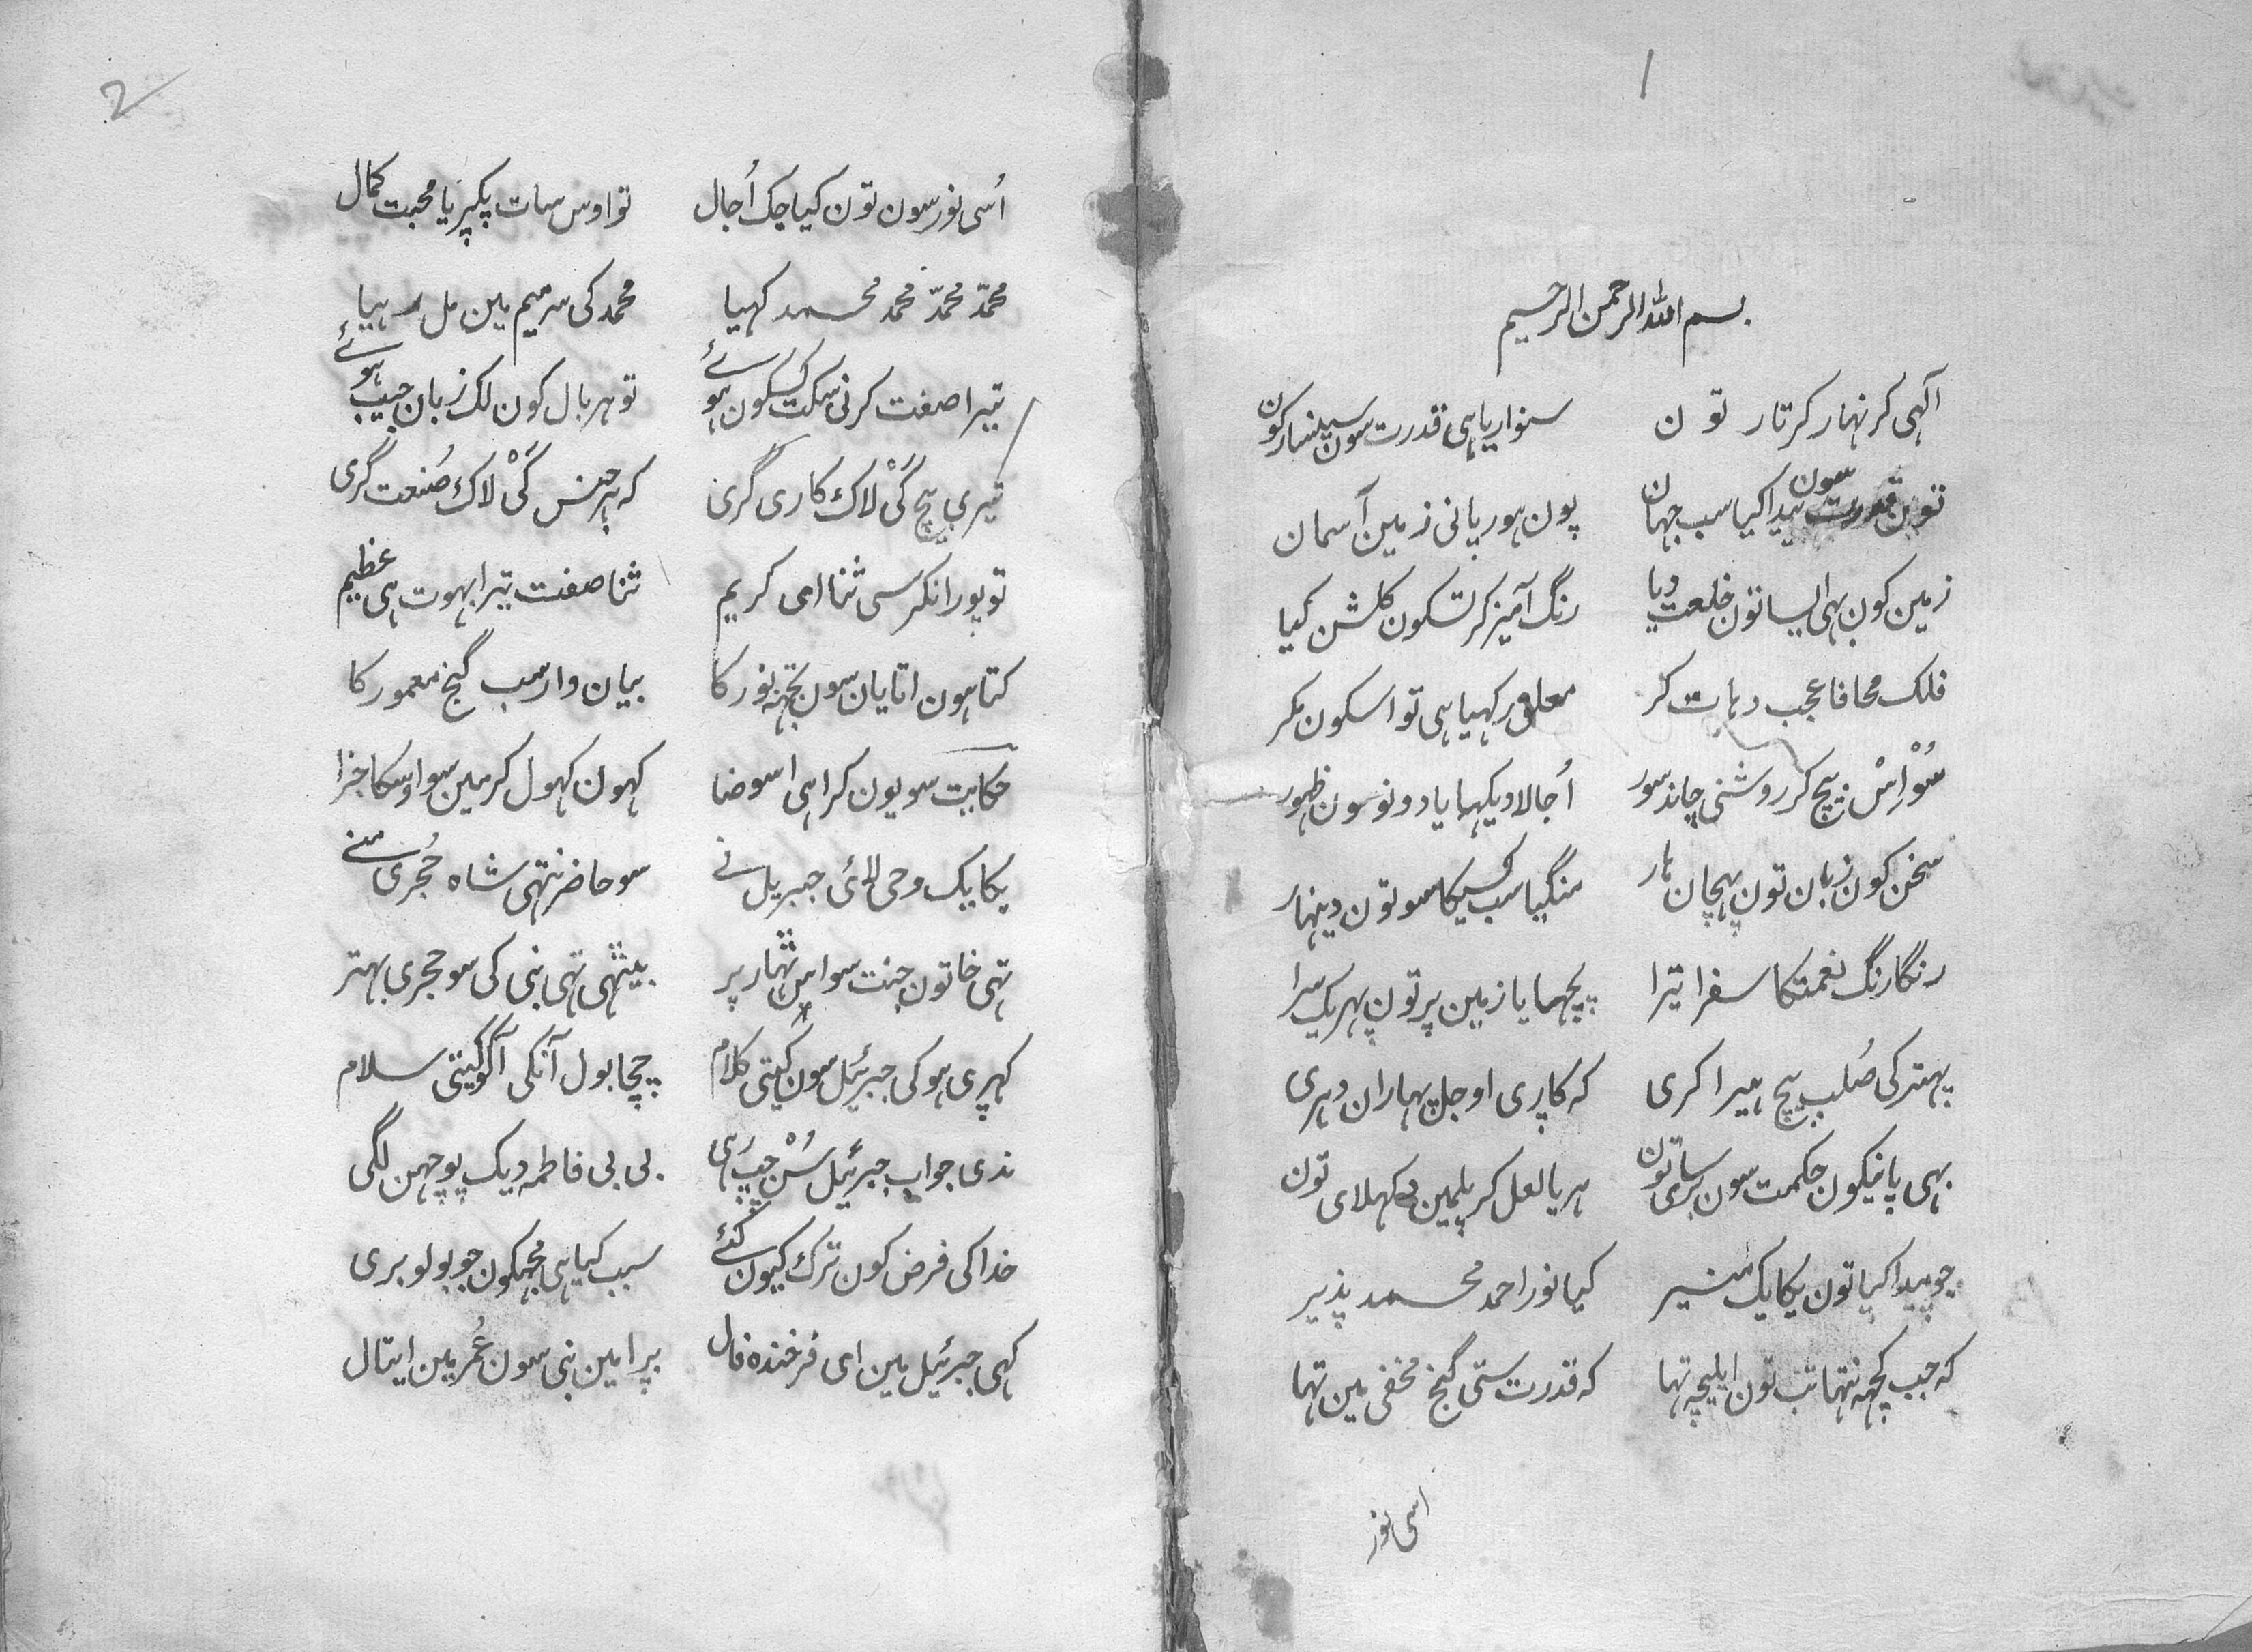 1
بسم الله الرحمن الرحیم
آلهی کرنهار کرتار تون سنواریا هی قدرت سون سینسار کون
تون قدرت سون پیدا کیا سب جهان پون هور پانی زمین آسمان
زمین کون بهی ایسا تون خلعت دیا رنگ آمیز کر تسکون کلشن کیا
فلک محافا عجب دهات کر معلق رکهیا هی تو اسکون مکر
سُوْ اِسْ بیچ کر روشنی چاند سور اُجالا دیکهایا دونو سون ظهور
سخن کون زبان تون پهچان هار منگیا سب کسیکا سو تون دینهار
رنگارنگ نعمتکا سفرا تیرا پچهایا زمین پر تون پهر یک سرا
پهتر کی صُلب بیچ هیرا کری که کاری اوجل پهاران دهری
بهی پانیکون حکمت سون برساتی تون هریا لعل کر پلمین دکهلای تون
جو پیدا کیا تون یکایک منیر کیا نور احمد محمد پذیر
که جب کچهه نتها تب تون ایلیچه تها که قدرت ستی گنج مخفی مین تها
اسی نور
2
اُسی نور سون تون کیا جک اُجال تو اوس سات پکپڑیا محبت کمال
محمّد محمّد محمد محمد کهیا محمد کی سر میم مین مل رهیا
تیرا صفت کرنی سکت کسکون هوئے تو هر بال کون لک زبان جیب هوئے
تیری بیچ کَیْ لاک کاری گری که هر جنس کَیْ لاک صُنعت گری
تو پورا نکر سی ثنا ای کریم ثنا صفت تیرا بهوت هی عظیم
کتا هون اتا یان سون تجهه نور کا بیان وار سب گنج معمور کا
حکایت سو یون کرا هی اسو ضا کهون کهول کر مین سو اوسکا جزا
یکایک وحی لائی جبریل نے سو حاضر نتهی شاه حُجری منے
تهی خاتون جنت سو اس ٹهار پر بیٹهی تهی نبی کی سو حجری بهتر
کهڑی هو کی جبرئیل سون کیتی کلام چچا بول آنکی آکو کیتی سلام
ندی جواب جبرئیل سُنْ چپ رَهی بی بی فاطمه دیک پوچهن لگی
خدا کی فرض کون ترک کیون کئے سبب کیا هی مجهکون جو بولو بری
کهی جبرئیل مین ای فرخنده فال بڑا مین نبی سون عُمر مین ایتال